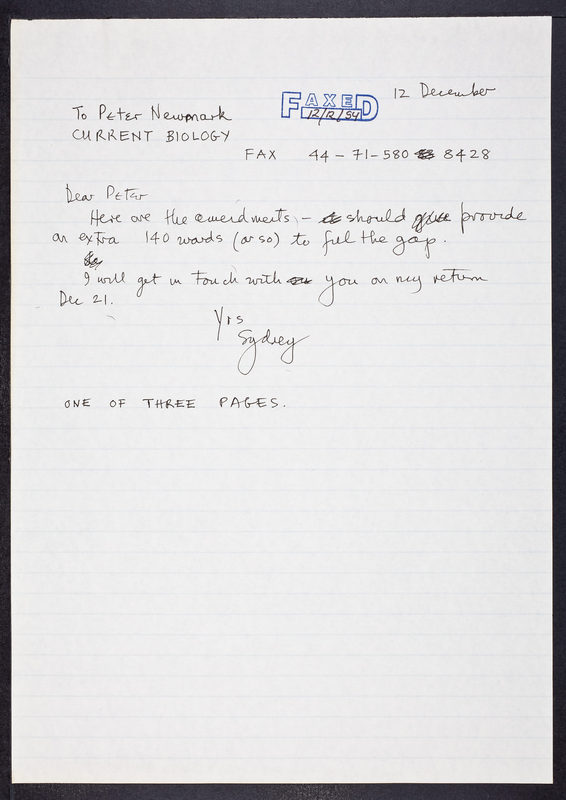 12 December
To Peter Newmark
FAXED
12/12/94
CURRENT BIOLOGY
FAX 44-71-580 8428
Dear Peter
Here are the amendments - should provide
an extra 140 words (or so) to fill the gap.
I will get in touch with you on my return
Dec 21.
Yrs
Sydney
ONE OF THREE PAGES.